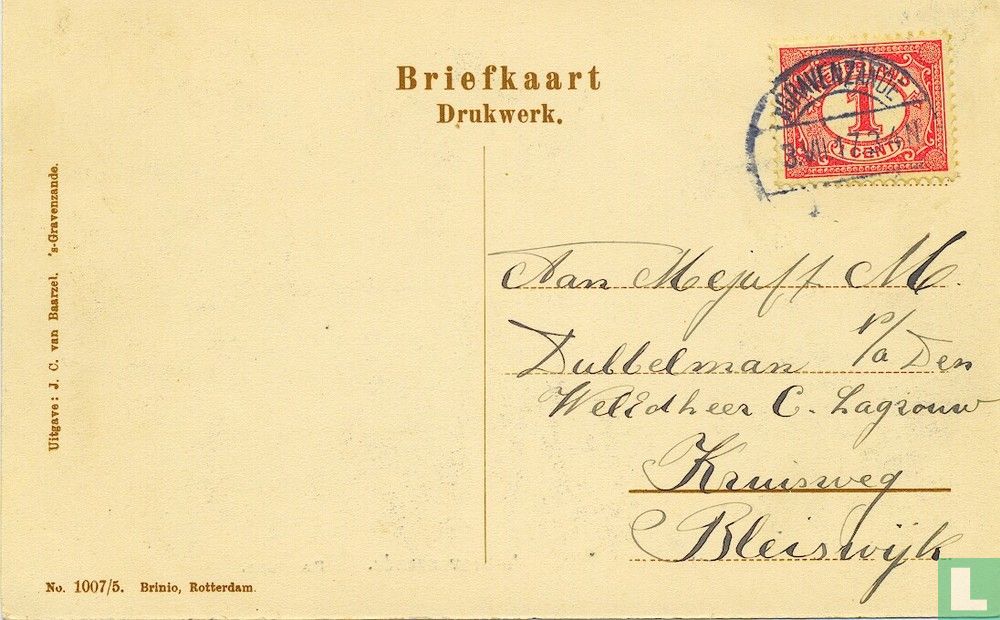 Briefkaart
Drukwerk.
's-GRAVENZANDE
1
CENT
Uitgave: J. C. van Baarzel. 's-Gravenzande.
Aan Mejuff M.
Dubbelman p/a Den
WelEdheer C. Lagrouw
Kruisweg
Bleiswijk
No. 1007/5. Brinio, Rotterdam.
L